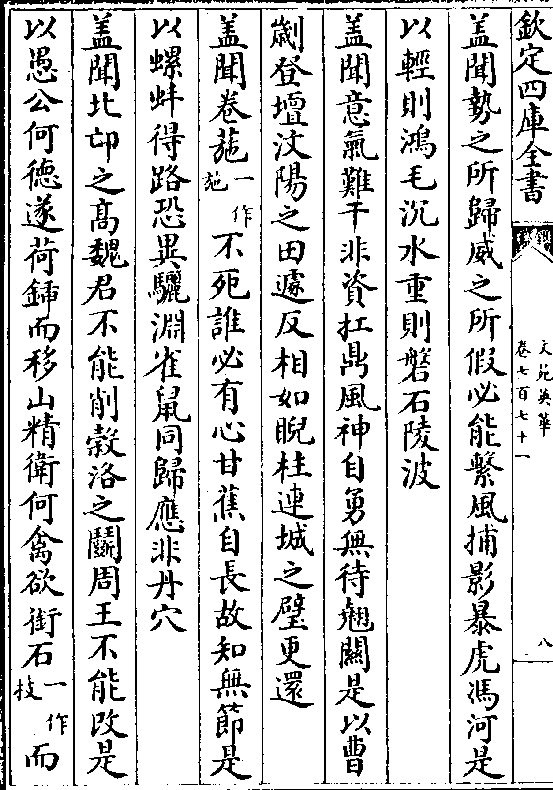 欽定四庫全書
文苑英華
卷七百七十一
八
蓋聞勢之所歸威之所假必能繫風捕影暴虎馮河是
以輕則鴻毛沉水重則磐石陵波
蓋聞意氣難干非資扛鼎風神自勇無待翹關是以曹
劌登壇汶陽之田遽反相如睨柱連城之璧更還
蓋聞卷葹一作施不死誰必有心甘蕉自長故知無節是
以螺蚌得路恐異驪淵雀鼠同歸應非丹穴
蓋聞北邙之髙魏君不能削榖洛之鬬周王不能改是
以愚公何德遂荷鍤而移山精衛何禽欲銜石一作枝而